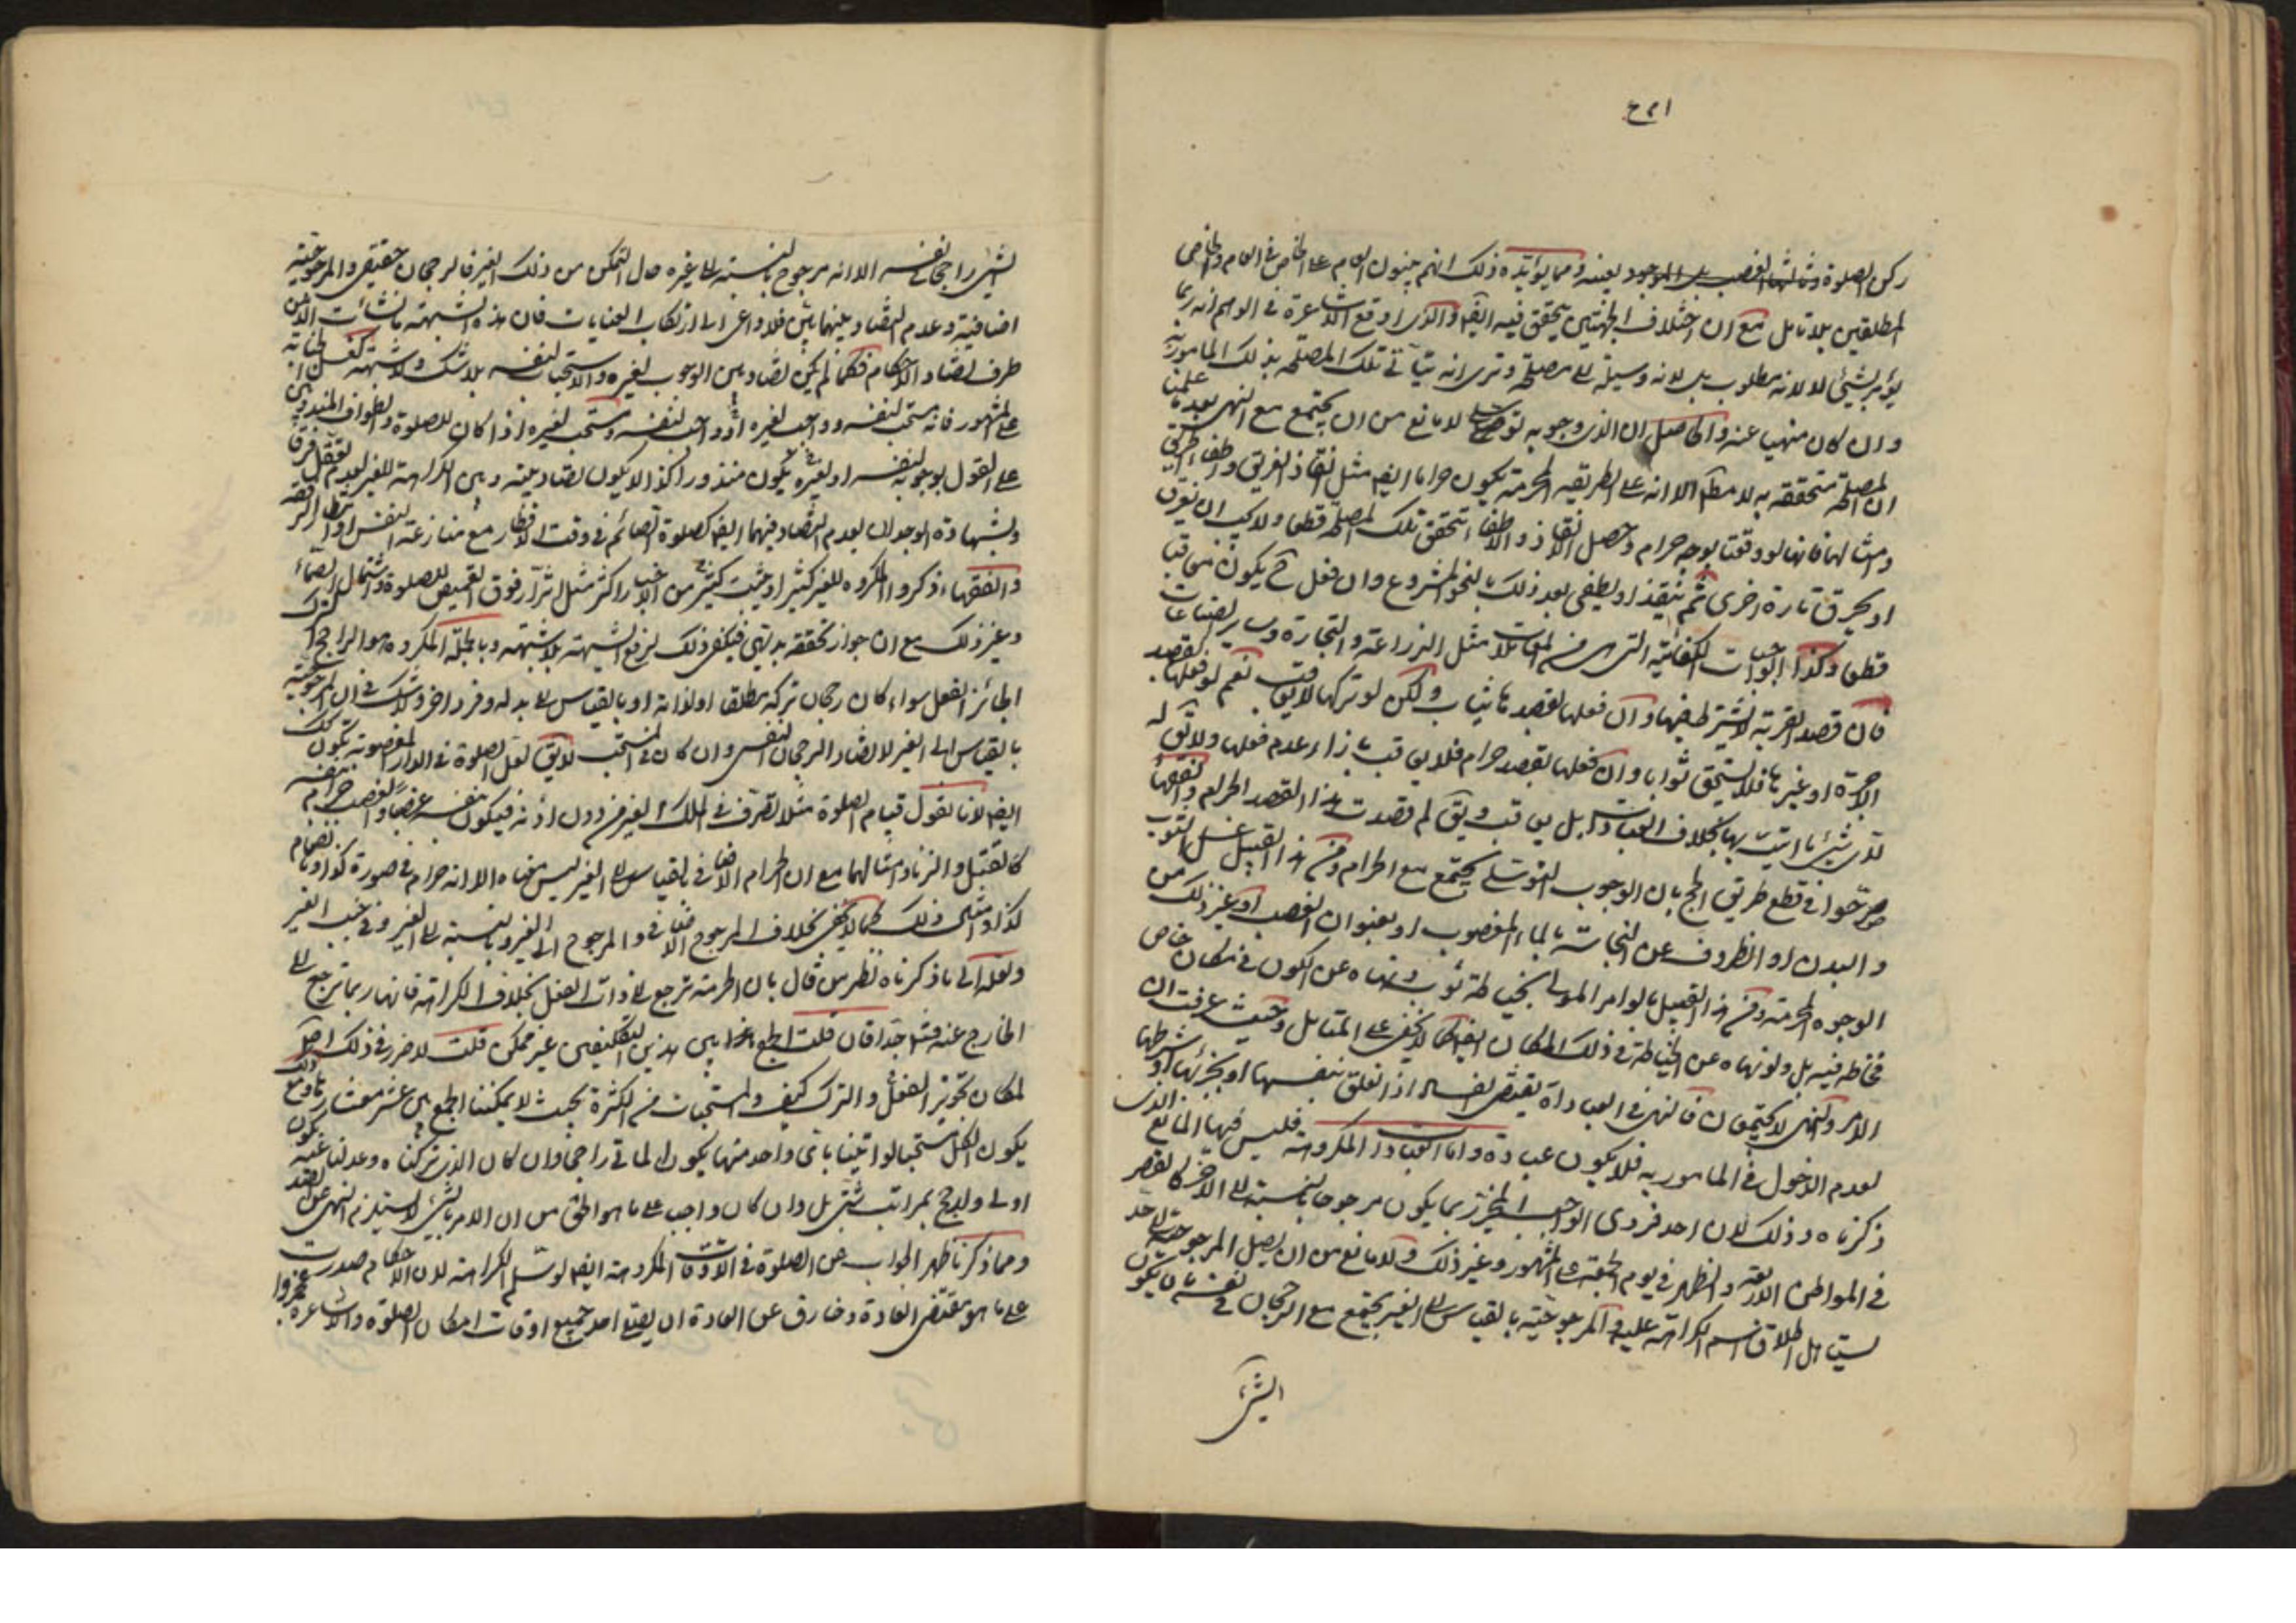 ركن الصلوة ومما يؤيده ذلك انهم يبنون العام على الخاص في العام والخاص
المطلقين بلا تامل مع ان اختلاف الجهتين يتحقق فيه ايضا والذي اوقع الاشاعرة في الوهم انه ربما
يؤمر بشيئ لا لانه مطلوب بل لانه وسيلة الى مصلحة وترى انه يتاتى تلك المصلحة بذلك المامور به
وان كان منهيا عنه والحاصل ان الذي وجوبه توصلي لا مانع من ان يجتمع مع النهي بعد علمنا
ان المصلحة متحققة به لا مطلقا الا انه على الطريقة المحرمة يكون حراما ايضا مثل انقاذ الغريق واطفاء الحريق
وامثالهما فانهما لو وقعتا بوجه حرام وحصل الانقاذ والاطفاء تتحقق تلك المصلحة قطعا ولا يجب ان يغرق
او يحرق تارة اخرى ثم ينقذ او يطفي بعد ذلك بالنحو المشروع وان فعل ح يكون معاقبا
قطعا وكذا الواجبات الكفائية التي هي من المعاملات مثل الزراعة والتجارة وساير الصناعات
فان قصد القربة لا يشترط فيها وان فعلها بقصدها يثاب ولكن لو تركها لا يعاقب نعم لو فعلها بقصد
الاجرة او غيرها فلا يستحق ثوابا وان فعلها بقصد حرام فلا يعاقب بازاء عدم فعلها ولا يق له
لاي شيئ ما اتيت بها بخلاف العبادات بل يعاقب ويق لم قصدت هذا القصد الحرام والفقهاء
صرحوا في قطع طريق الحج بان الوجوب التوصلي يجتمع مع الحرام ومن هذا القبيل غسل الثوب
والبدن او الظروف عن النجاسة بالماء المغصوب او بعنوان الغصب او غير ذلك من
الوجوه المحرمة ومن هذا القبيل ما لو امر المولى بخياطة ثوب ونهاه عن الكون في مكان خاص
فخاطه فيه بل ولو نهاه عن الخياطة في ذلك المكان ايضا كما لا يخفى على المتامل وحيث عرفت ان
الامر والنهي لا يجتمعان فالنهي في العبادات يقتضي الفساد اذا تعلق بنفسها او بجزئها او شرطها
لعدم الدخول في المامور به فلا يكون عبادة واما العبادات المكروهة فليس فيها المانع الذي
ذكرناه وذلك لان احد فردي الواجب المخير ربما يكون مرجوحا بالنسبة الى الاخر كالقصر
في المواطن الاربعة والظهر في يوم الجمعة على المشهور وغير ذلك ولا مانع من ان يصل المرجوحية الى حد
يستاهل اطلاق اسم الكراهة عليه والمرجوحية بالقياس الى الغير يجتمع مع الرجحان في نفسه بان يكون
الشيئ
الشيئ راجحا في نفسه الا انه مرجوح بالنسبة الى غيره حال التمكن من ذلك الغير فالرجحان حقيقي والمرجوحية
اضافية وعدم التضاد بينهما بين فلا داعي الى ارتكاب العنايات فان هذه الشبهة ما نشأت الا من
طرف تضاد الاحكام فكما لم يكن تضاد بين الوجوب لغيره والاستحباب لنفسه بلا شك ولا شبهة كغسل الجنابة
على المشهور فانه مستحب لنفسه وواجب لغيره او واجب لنفسه ومستحب لغيره اذا كان للصلوة والطواف المندوبين
على القول بوجوبه لنفسه او لغيره يكون منذورا كذا لا يكون تضاد بينه وبين الكراهة للغير لعدم تعقل فرق
وبشهادة الوجدان بعدم التضاد فيهما ايضا كصلوة الصائم في وقت الافطار مع منازعة النفس او انتظار الرفقة
والفقهاء ذكروا المكروه للغير كثيرا وحيث كثير من الاخبار اكثر مثل اتزار فوق القميص للصلوة واشتمال الصماء
وغير ذلك مع ان جواز تحققه بديهي فيكفي ذلك لرفع الشبهة بلا شبهة وبالجملة المكروه هو الراجح الترك
الجائز الفعل سواء كان رجحان تركه مطلقا او لذاته او بالقياس الى بدله وفرد اخر ولا شك في ان المرجوحية
بالقياس الى الغير لا تضاد الرجحان النفسي وان كان في المستحب لا يق لعل الصلوة في الدار المغصوبة تكون كك
ايضا لانا نقول قيام الصلوة مثلا تصرف في ملك الغير من دون اذنه فيكون نفسه غصبا والغصب حرام بنفسه
كالقتل والزنا وامثالهما مع ان الحرام الاضافي بالقياس الى الغير ليس معناه الا انه حرام في صورة كذا او بانضمام
كذا وامثال ذلك كما لا يخفى بخلاف المرجوح الاضافي والمرجوح الى الغير وبالنسبة الى الغير وفي جنب الغير
ولعله الى ما ذكرناه نظر من قال بان الحرمة ترجع الى ذات الفعل بخلاف الكراهة فانها ربما ترجع الى
الخارج عنه فتدبر جدا فان قلت الجمع بين هذين التكليفين غير ممكن قلت لا ضرر في ذلك اصلا
لمكان تجويز الفعل والترك كيف والمستحبات من الكثرة بحيث لا يمكننا الجمع بين عشر معشارها مع ذلك
يكون الكل مستحبا لو اتينا باي واحد منها يكون ما اتي راجحا وان كان الذي تركناه وعدلنا عنه يكون
اولى وارجح بمراتب شتى بل وان كان واجبا على ما هو الحق من ان الامر بالشيئ لا يستلزم النهي عن الضد
ومما ذكرنا ظهر الجواب عن الصلوة في الاوقات المكروهة ايضا لو سلم الكراهة لان الاحكام صدرت
على ما هو مقتضى العادة وخارق عن العادة ان يصلي احد جميع اوقات امكان الصلوة والاشاعرة